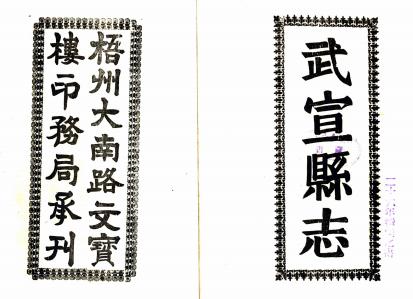 武宣縣志
梧州大南路文寶
樓印務局承刊